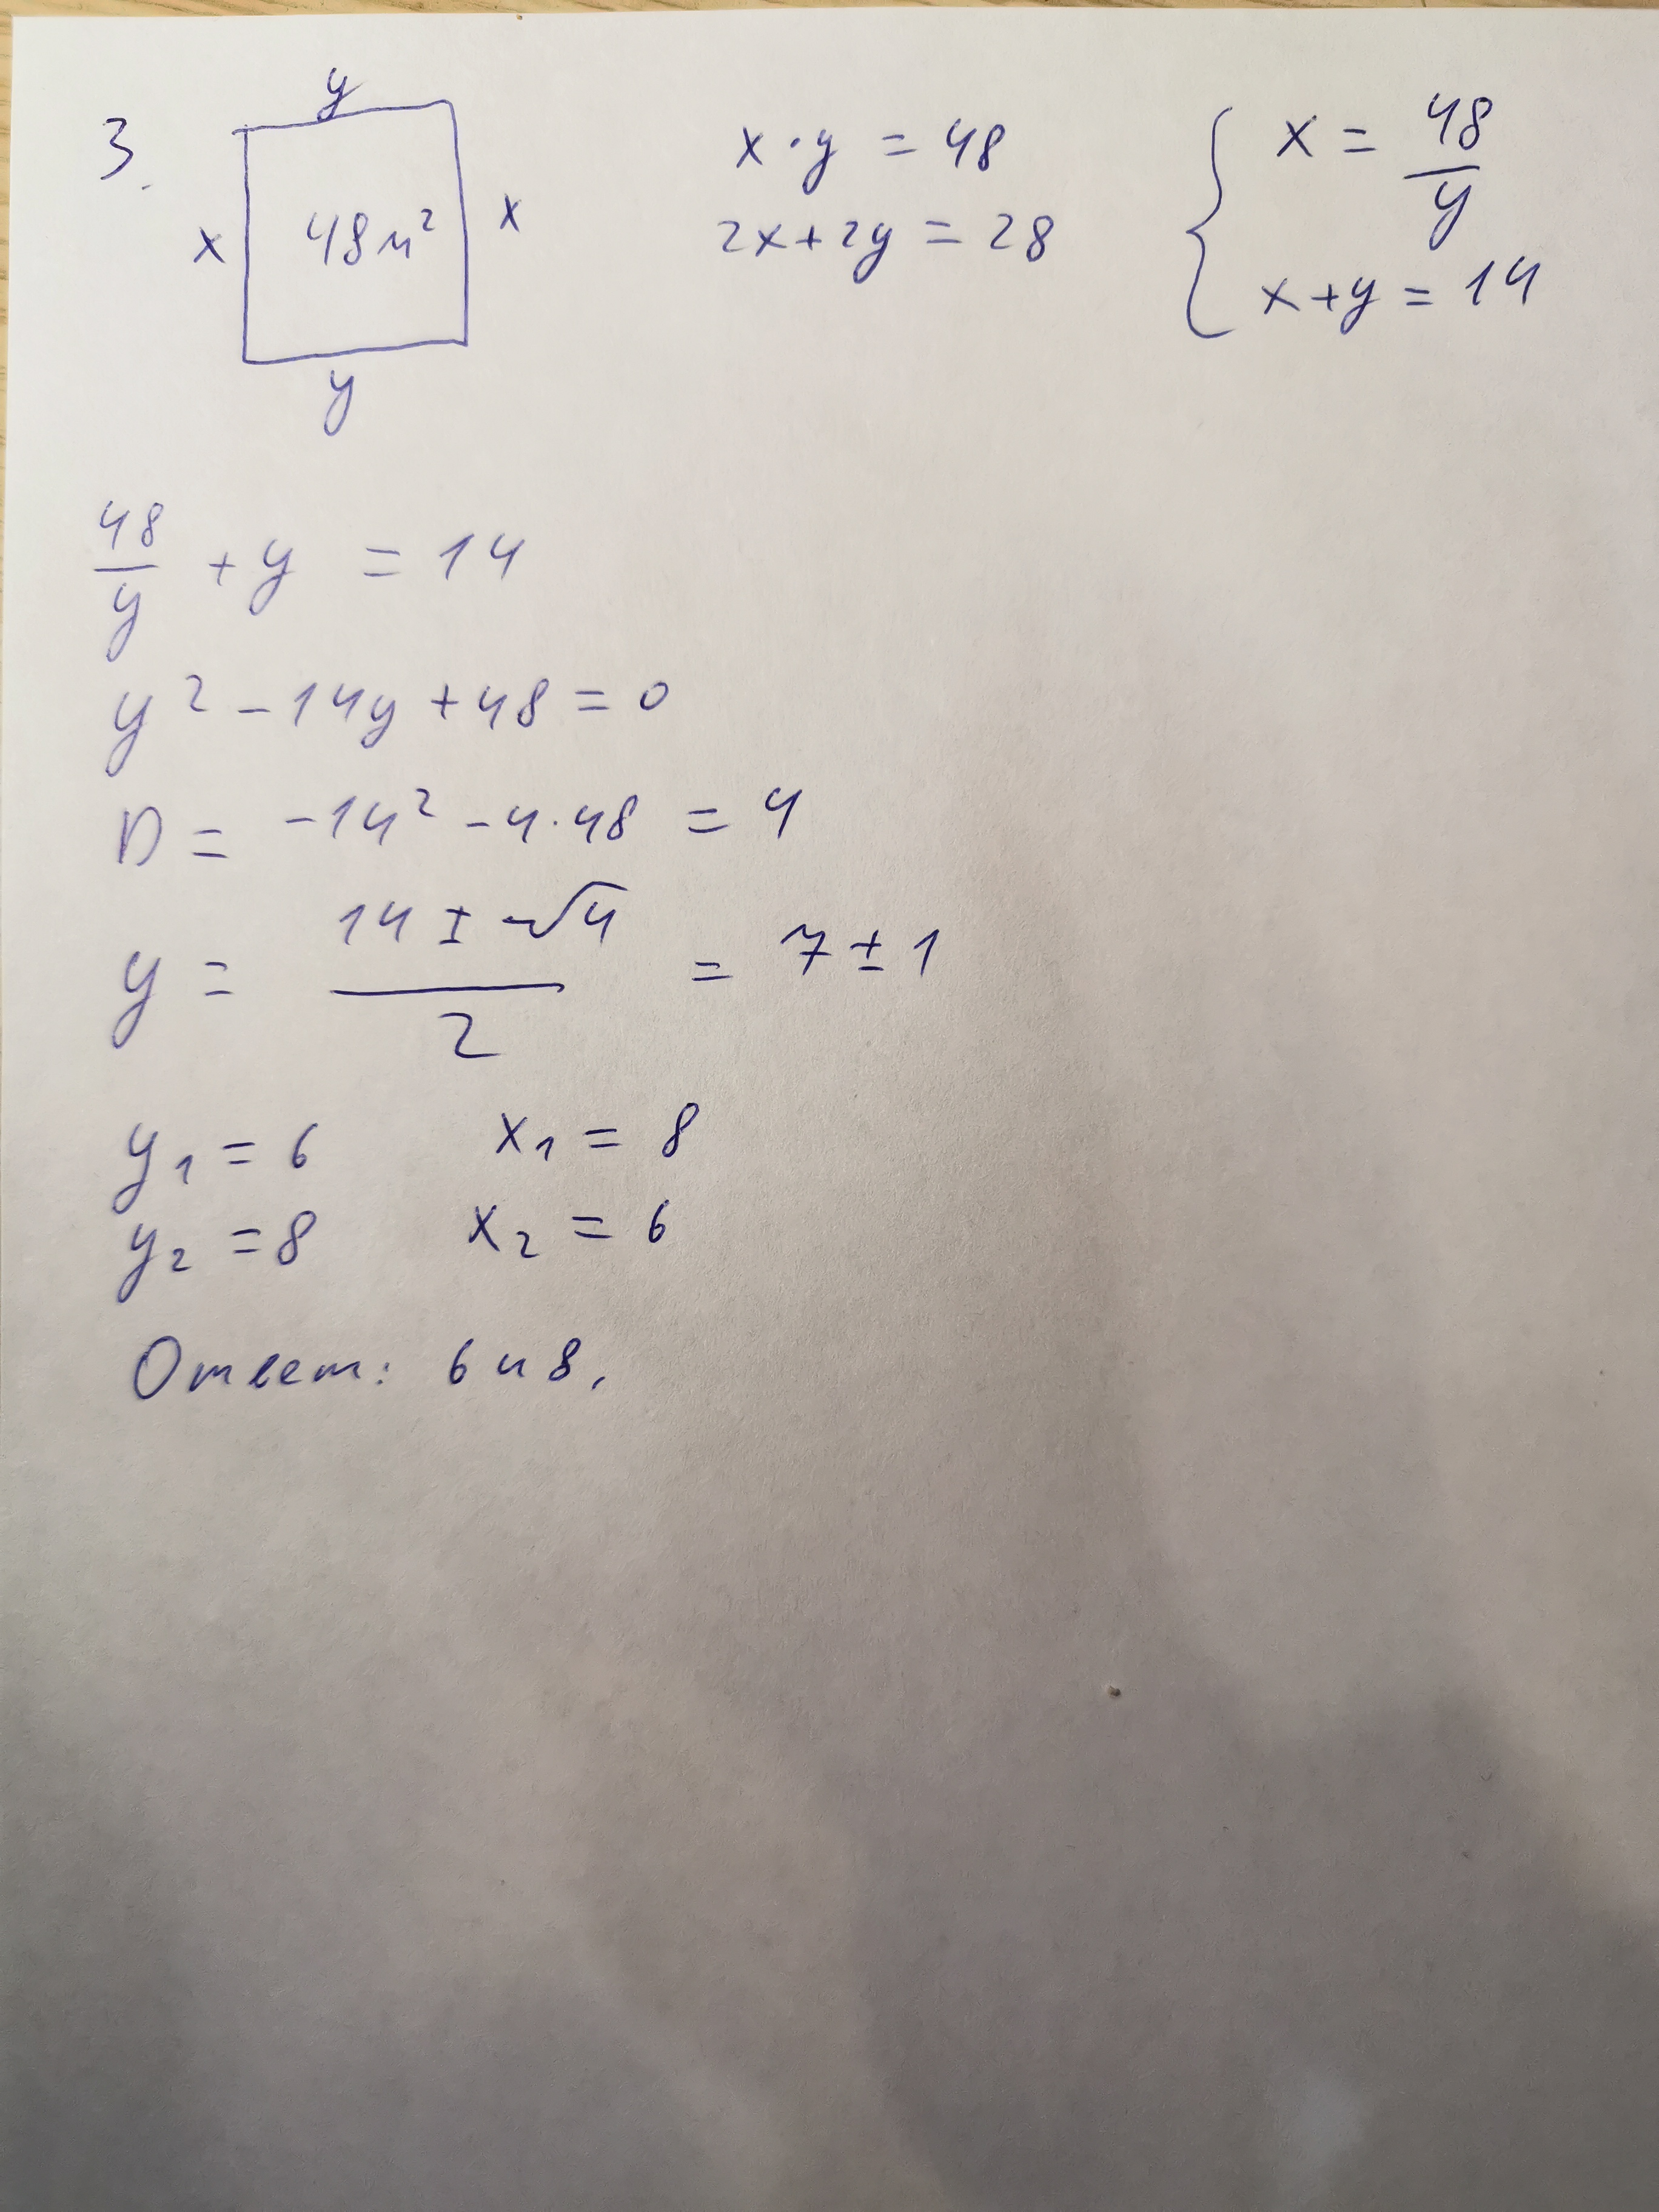 3.
y
x 48 м² x
y
x · y = 48
2x + 2y = 28
{ x = 48/y
x + y = 14
48/y + y = 14
y² - 14y + 48 = 0
D = -14² - 4 · 48 = 4
y = (14 ± √4)/2 = 7 ± 1
y₁ = 6 x₁ = 8
y₂ = 8 x₂ = 6
Ответ: 6 и 8.